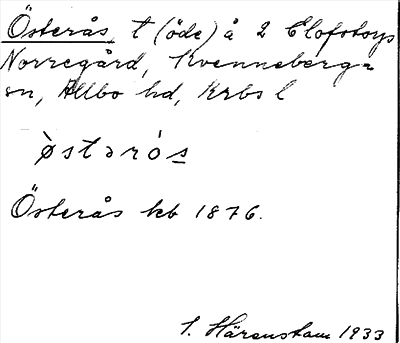 Österås, t (öde) å 2 Elofstorps
Norregård, Kvenneberga
sn, Allbo hd, Krbs l
østərås
Österås kb 1876.
S. Härenstam 1933